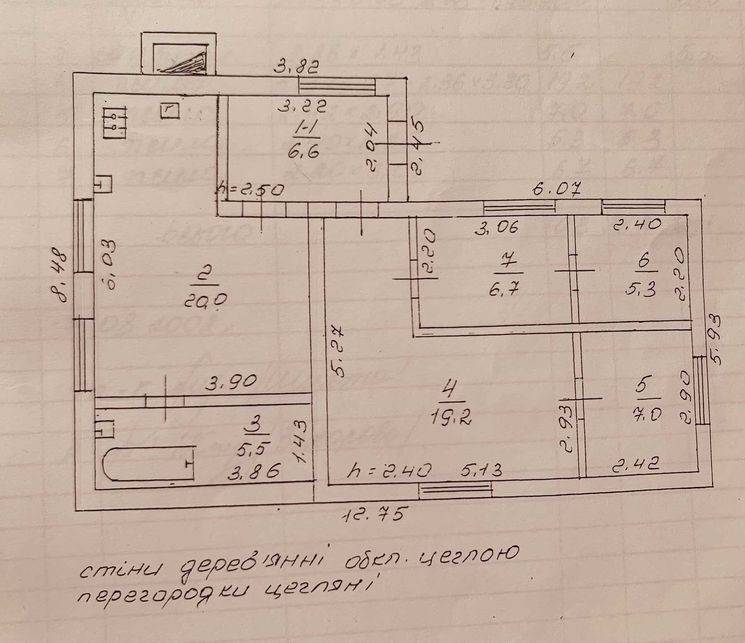 3.82
3.22
1-1
6.6
2.04
2.45
h=2.50
6.07
3.06
2.40
2.20
7
6.7
6
5.3
2.20
8.48
6.03
2
20.0
5.27
5.93
3.90
4
19.2
5
7.0
2.90
2.93
3
5.5
1.43
3.86
h = 2.40
5.13
2.42
12.75
стіни дерев'янні обкл. цеглою
перегородки цегляні